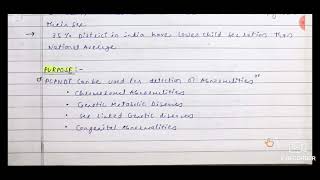 Their Sex
→ 35% District in india have lower child sex ration than
National Average
PURPOSE :-
PCANDT Can be used for detection of Abnormalities"
• Chromosomal Abnormalities
• Genetic Metabolic Diseases
• Sex linked Genetic diseases
• Congenital Abnormalities